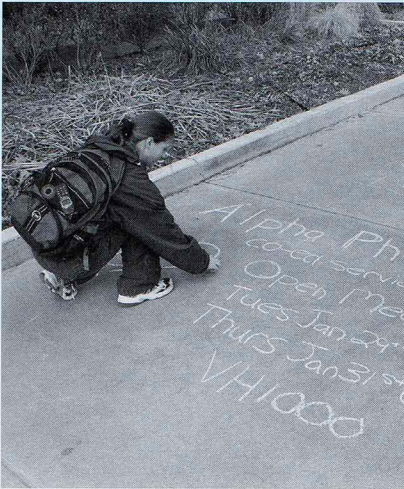 Alpha Ph
co-ed servic
Open Mee
Tues Jan 29th
Thurs Jan 31st
VH1000